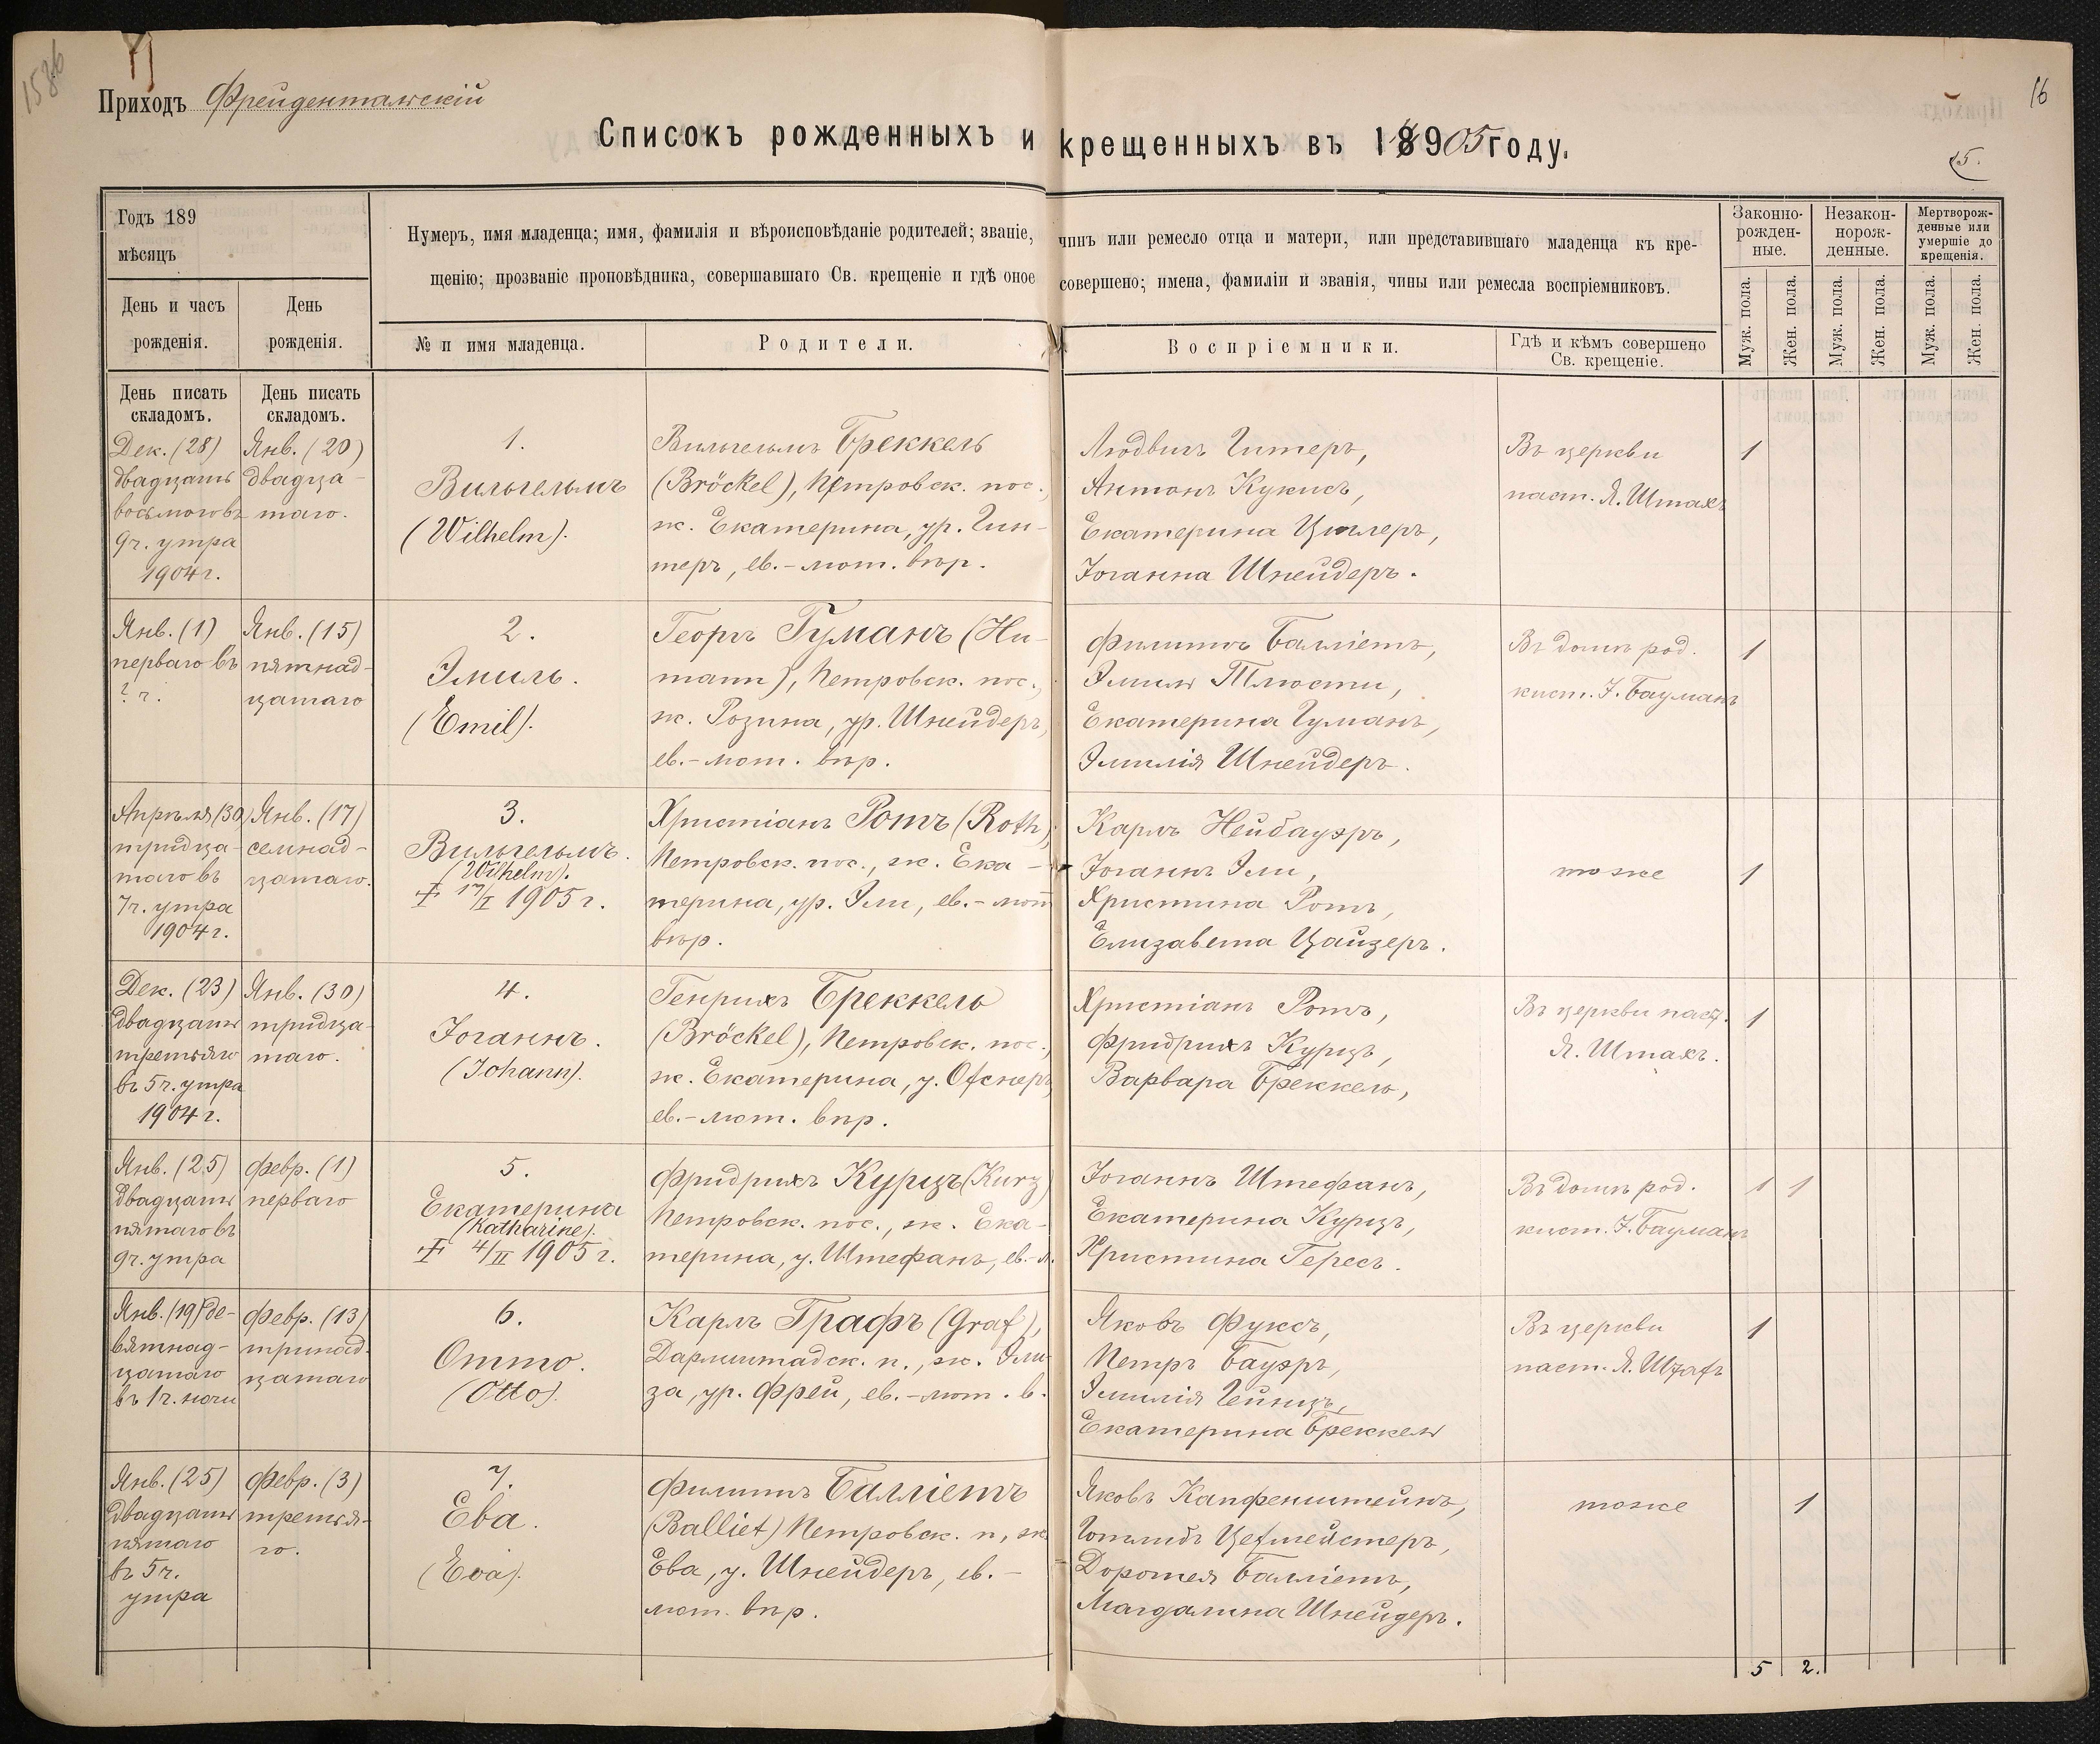 1586
Приходъ Фрейдентальскій
16
Списокъ рожденныхъ и крещенныхъ въ 1905 году.
15.
Годъ 189
мѣсяцъ
День и часъ
рожденія.
День
рожденія.
Нумеръ, имя младенца; имя, фамилія и вѣроисповѣданіе родителей; званіе, чинъ или ремесло отца и матери, или представившаго младенца къ кре-
щенію; прозваніе проповѣдника, совершавшаго Св. крещеніе и гдѣ оное совершено; имена, фамиліи и званія, чины или ремесла воспріемниковъ.
№ и имя младенца.
Родители.
Воспріемники.
Гдѣ и кѣмъ совершено
Св. крещеніе.
Законно-
рожден-
ные.
Незакон-
норож-
денные.
Мертворож-
денные или
умершіе до
крещенія.
Муж. пола.
Жен. пола.
Муж. пола.
Жен. пола.
Муж. пола.
Жен. пола.
День писать
складомъ.
День писать
складомъ.
Дек. (28)
двадцать
восьмого въ
9 ч. утра
1904 г.
Янв. (20)
двадца-
таго.
1.
Вильгельмъ
(Wilhelm).
Вильгельмъ Бреккель
(Bröckel), Петровск. пос.,
ж. Екатерина, ур. Гин-
теръ, ев.-лют. вѣр.
Людвигъ Гитеръ,
Антонъ Кукисъ,
Екатерина Циглеръ,
Іоганна Шнейдеръ.
Въ церкви
паст. Я. Штахъ
1
Янв. (1)
перваго въ
? ч.
Янв. (15)
пятнад-
цатаго
2.
Эмиль.
(Emil).
Георгъ Гуманъ (Hu-
mann), Петровск. пос.,
ж. Розина, ур. Шнейдеръ,
ев.-лют. вѣр.
Филиппъ Балліетъ,
Эмиль Тлюсти,
Екатерина Гуманъ,
Эмилія Шнейдеръ.
Въ домѣ род.
кист. І. Бауманъ
1
Апрѣля (30)
тридца-
таго въ
7 ч. утра
1904 г.
Янв. (17)
семнад-
цатаго.
3.
Вильгельмъ.
(Wilhelm).
† 17/I 1905 г.
Христіанъ Ротъ (Roth),
Петровск. пос., ж. Ека-
терина, ур. Эли, ев.-лют
вѣр.
Карлъ Нейбауэръ,
Іоганнъ Эли,
Христина Ротъ,
Елизавета Цайзеръ.
тоже
1
Дек. (23)
двадцать
третьяго
въ 5 ч. утра
1904 г.
Янв. (30)
тридца-
таго.
4.
Іоганнъ.
(Johann).
Генрихъ Бреккель
(Bröckel), Петровск. пос.,
ж. Екатерина, у.
ев.-лют. вѣр.
Христіанъ Ротъ,
Фридрихъ Курцъ,
Варвара Бреккель,
Въ церкви паст.
Я. Штахъ.
1
Янв. (25)
двадцать
пятаго въ
9 ч. утра
Февр. (1)
перваго
5.
Екатерина
(Katharine).
† 4/II 1905 г.
Фридрихъ Курцъ (Kurz)
Петровск. пос., ж. Ека-
терина, у. Штефанъ, ев.-л.
Іоганнъ Штефанъ,
Екатерина Курцъ,
Христина Гересъ.
Въ домѣ род.
кист. І. Бауманъ
1 1
Янв. (19) де-
вятнад-
цатаго
въ 1 ч. ночи
Февр. (13)
тринад-
цатаго
6.
Отто.
(Otto).
Карлъ Графъ (Graf),
Дармштадск. п., ж. Эли-
за, ур. Фрей, ев.-лют. в.
Яковъ Фуксъ,
Петръ Бауэръ,
Эмилія Гейницъ,
Екатерина Бреккель
Въ церкви
паст. Я. Штахъ
1
Янв. (25)
двадцать
пятаго
въ 5 ч.
утра
Февр. (3)
третья-
го.
7.
Ева.
(Eva).
Филиппъ Балліетъ
(Balliet) Петровск. п, ж
Ева, у. Шнейдеръ, ев.-
лют. вѣр.
Яковъ Капфенштейнъ,
Готлибъ Цехмейстеръ,
Доротея Балліетъ,
Магдалина Шнейдеръ.
тоже
1
5 2.